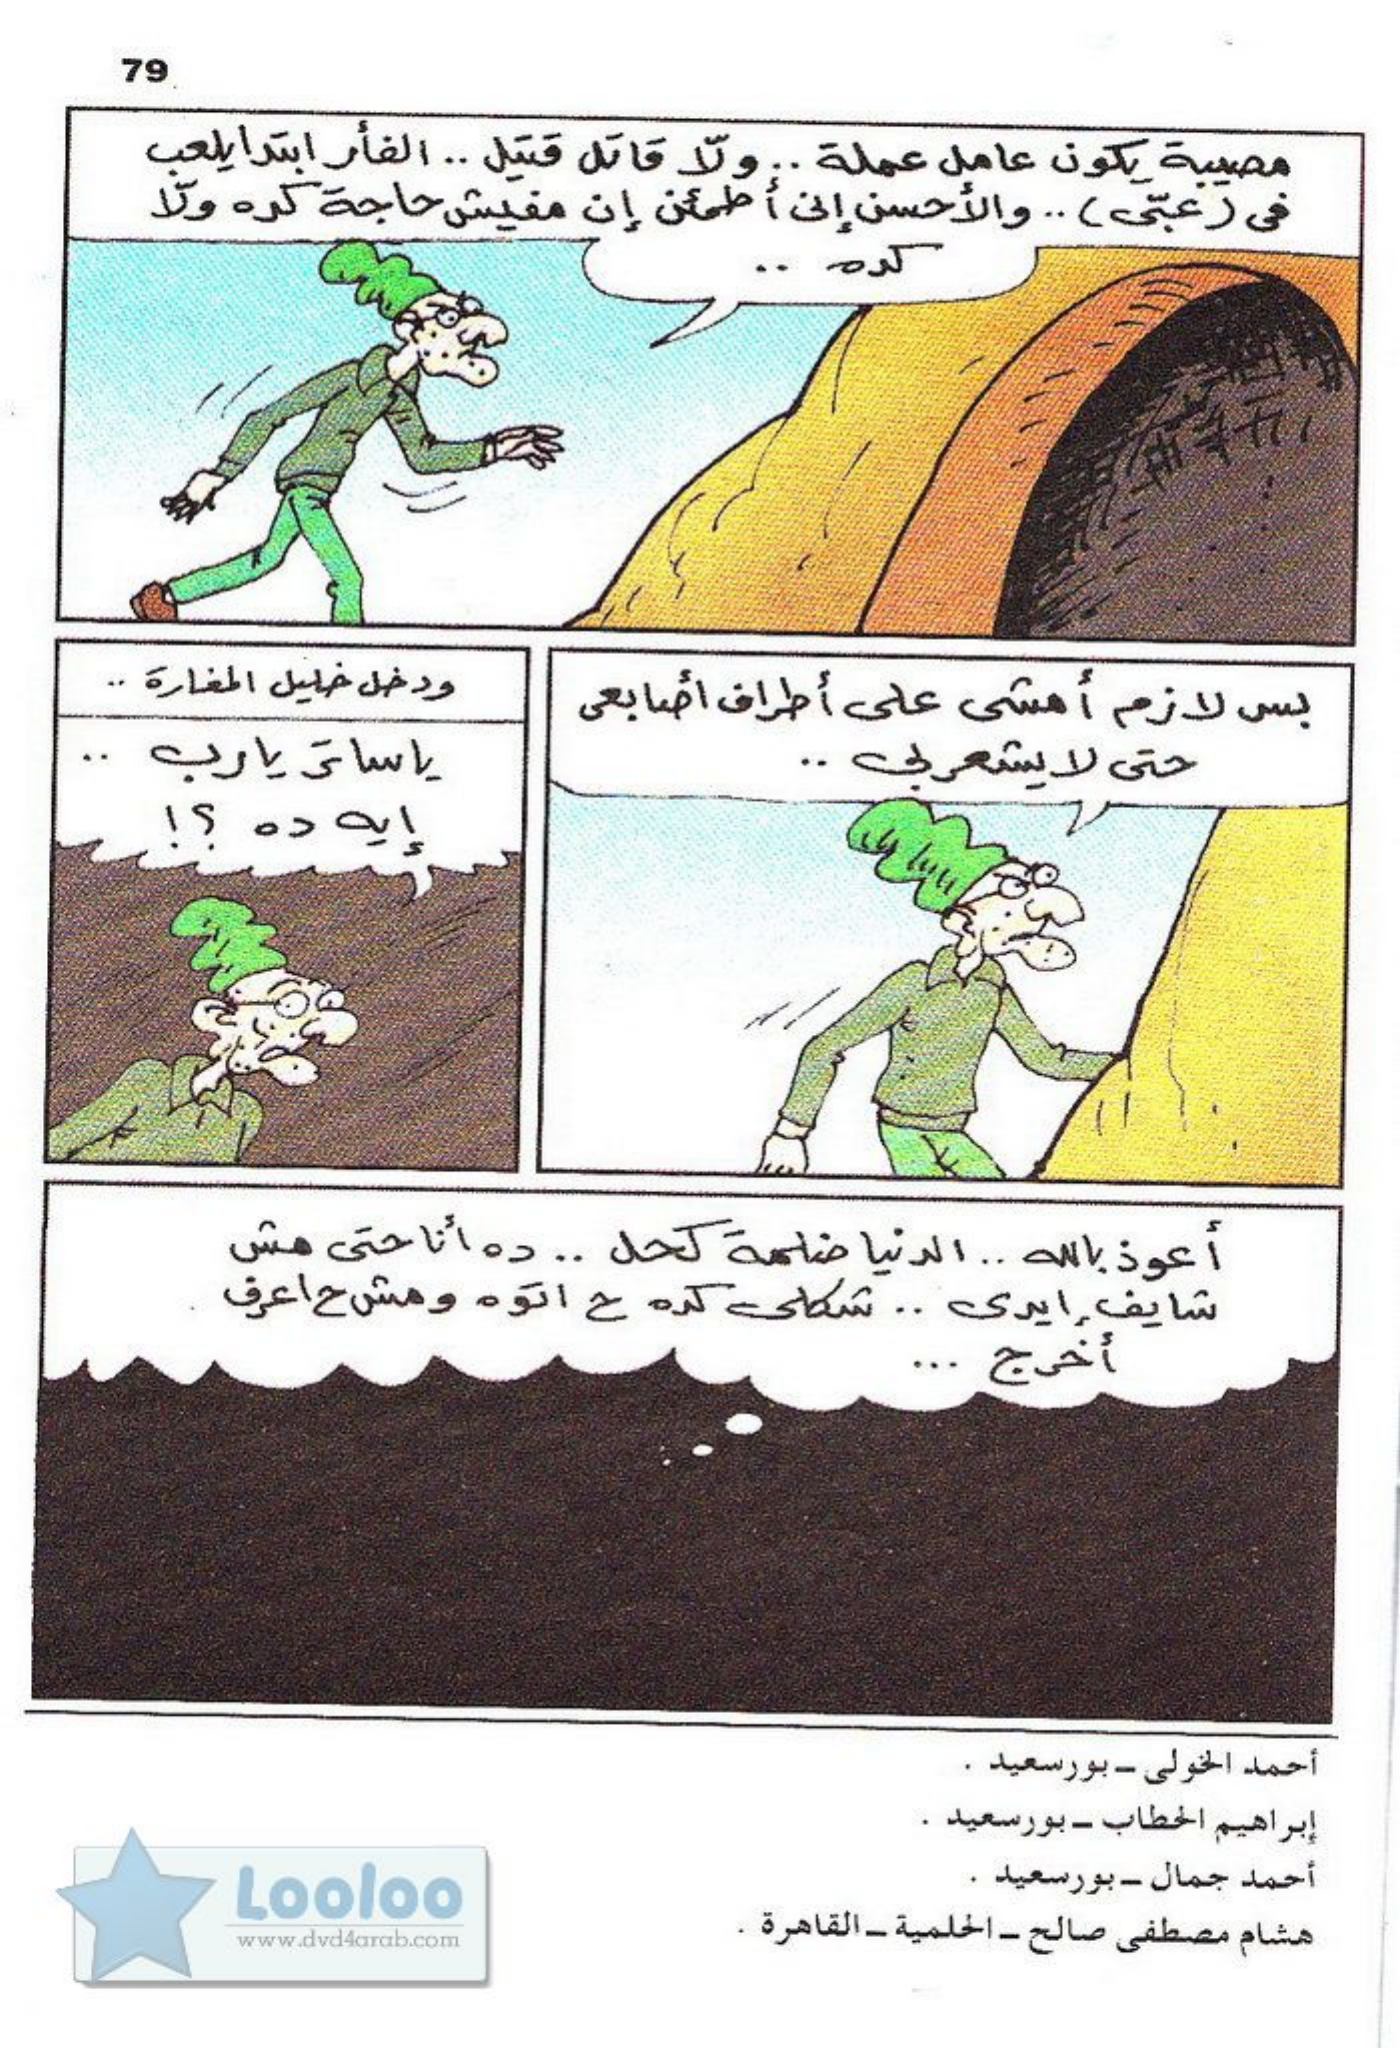 79
مصيبة يكون عامل عملة .. ولّا قاتل قتيل .. الفأر ابتدا يلعب
فى (عبّى) .. والأحسن إنى أطمئن إن مفيش حاجة كده ولّا
كده ..
بس لازم أمشى على أطراف أصابعى
حتى لا يشعر بى ..
ودخل خليل المغارة ..
ياساتر يارب ..
إيه ده ؟!
أعوذ بالله .. الدنيا ضلمة كحل .. ده أنا حتى مش
شايف إيدى .. شكلى كده ح اتوه ومش ح اعرف
أخرج ...
أحمد الخولى ــ بورسعيد .
إبراهيم الحطاب ــ بورسعيد .
أحمد جمال ــ بورسعيد .
هشام مصطفى صالح ــ الحلمية ــ القاهرة .
Looloo
www.dvd4arab.com